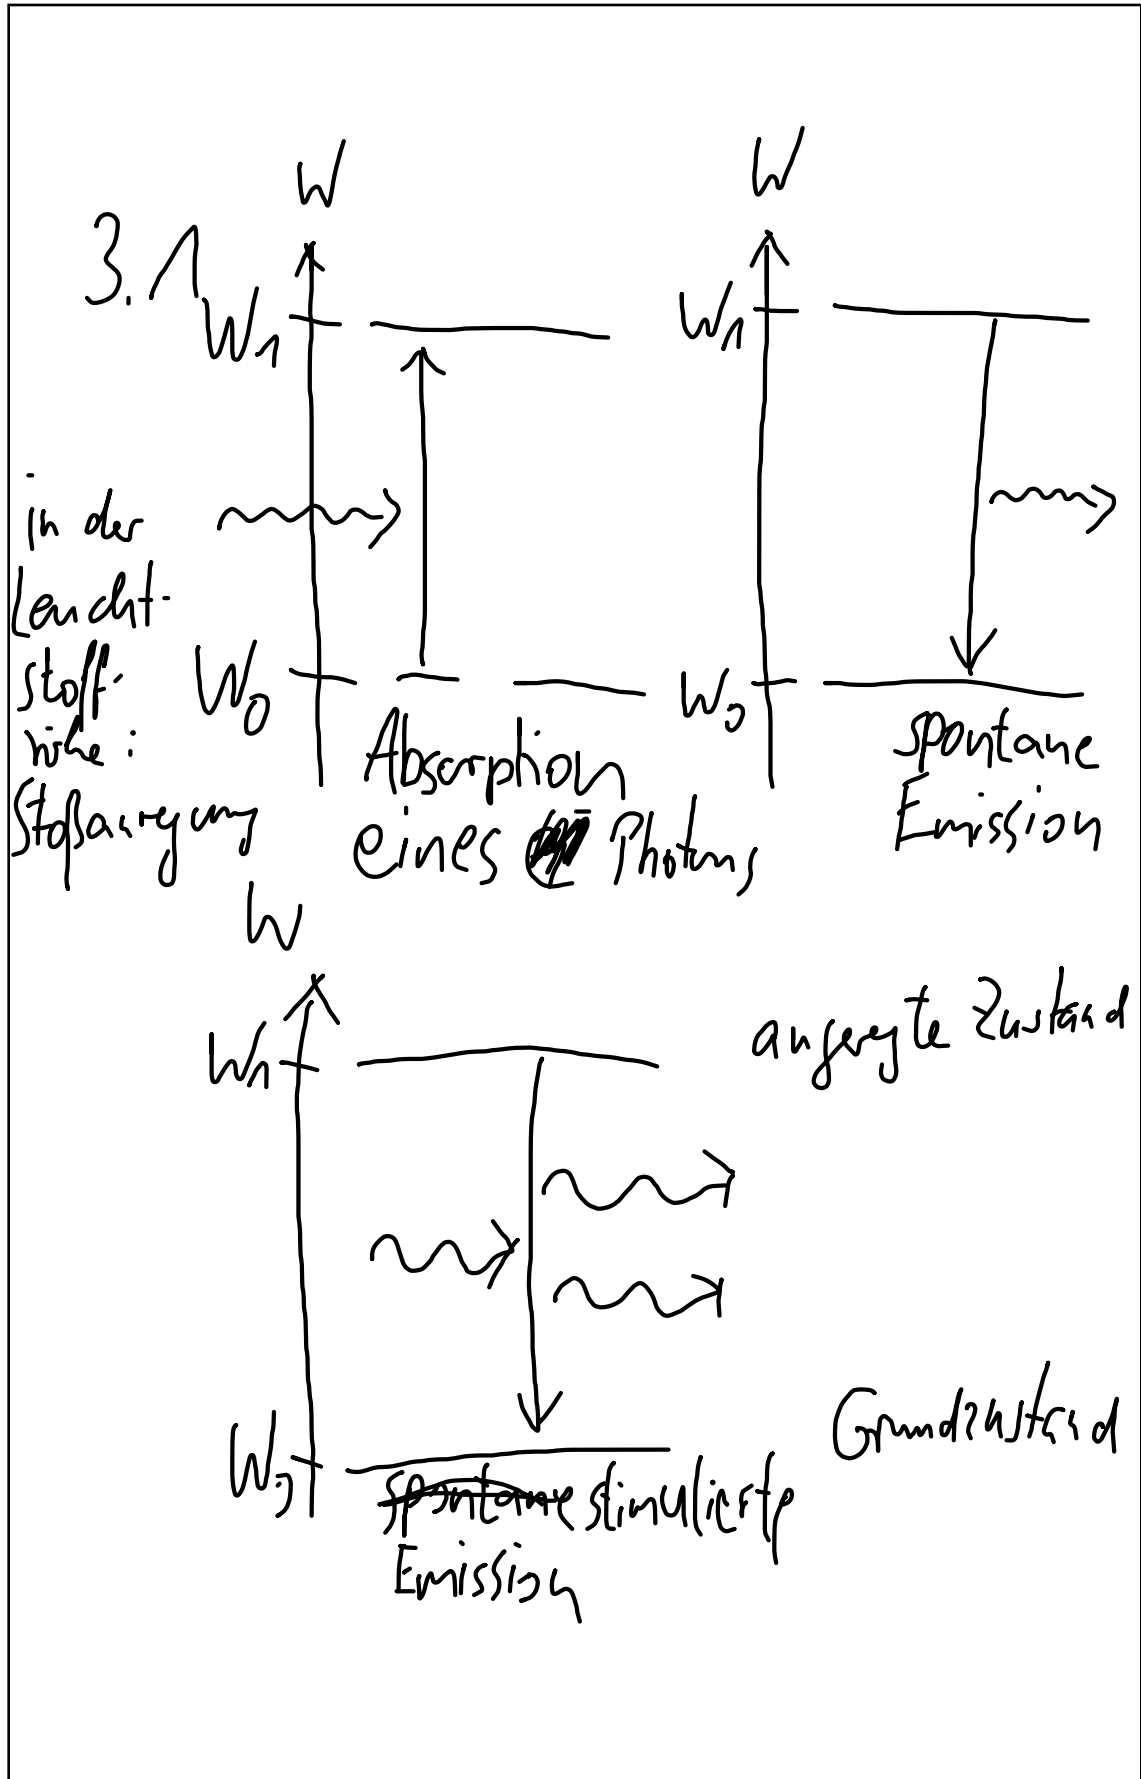 W
W
3.1
W₁
W₁
in der
Leucht-
stoff-
röhre:
Stoßanregung
W₀
W₀
Absorption
eines Photons
spontane
Emission
W
W₁
angeregte Zustand
W₀
Grundzustand
spontane stimulierte
Emission